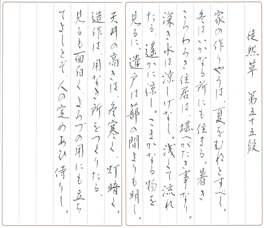 徒然草　第五十五段
家の作りやうは、夏をむねとすべし。
冬はいかなる所にも住まる。暑き
ころわろき住居は、堪へがたき事なり。
深き水は涼しげなし。浅くて流れ
たる、遥かに涼し。こまかなる物を
見るに、遣戸は蔀の間よりも明し。
天井の高きは、冬寒く、灯暗し。
造作は用なき所をつくりたる、
見るも面白く、よろづの用にも立ち
てよしとぞ、人の定めあひ侍りし。